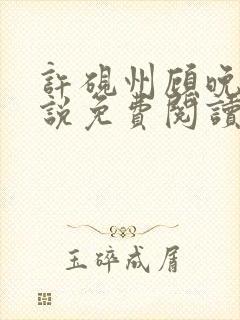 許硯州顧晚
說免費閱讀
玉碎成屑